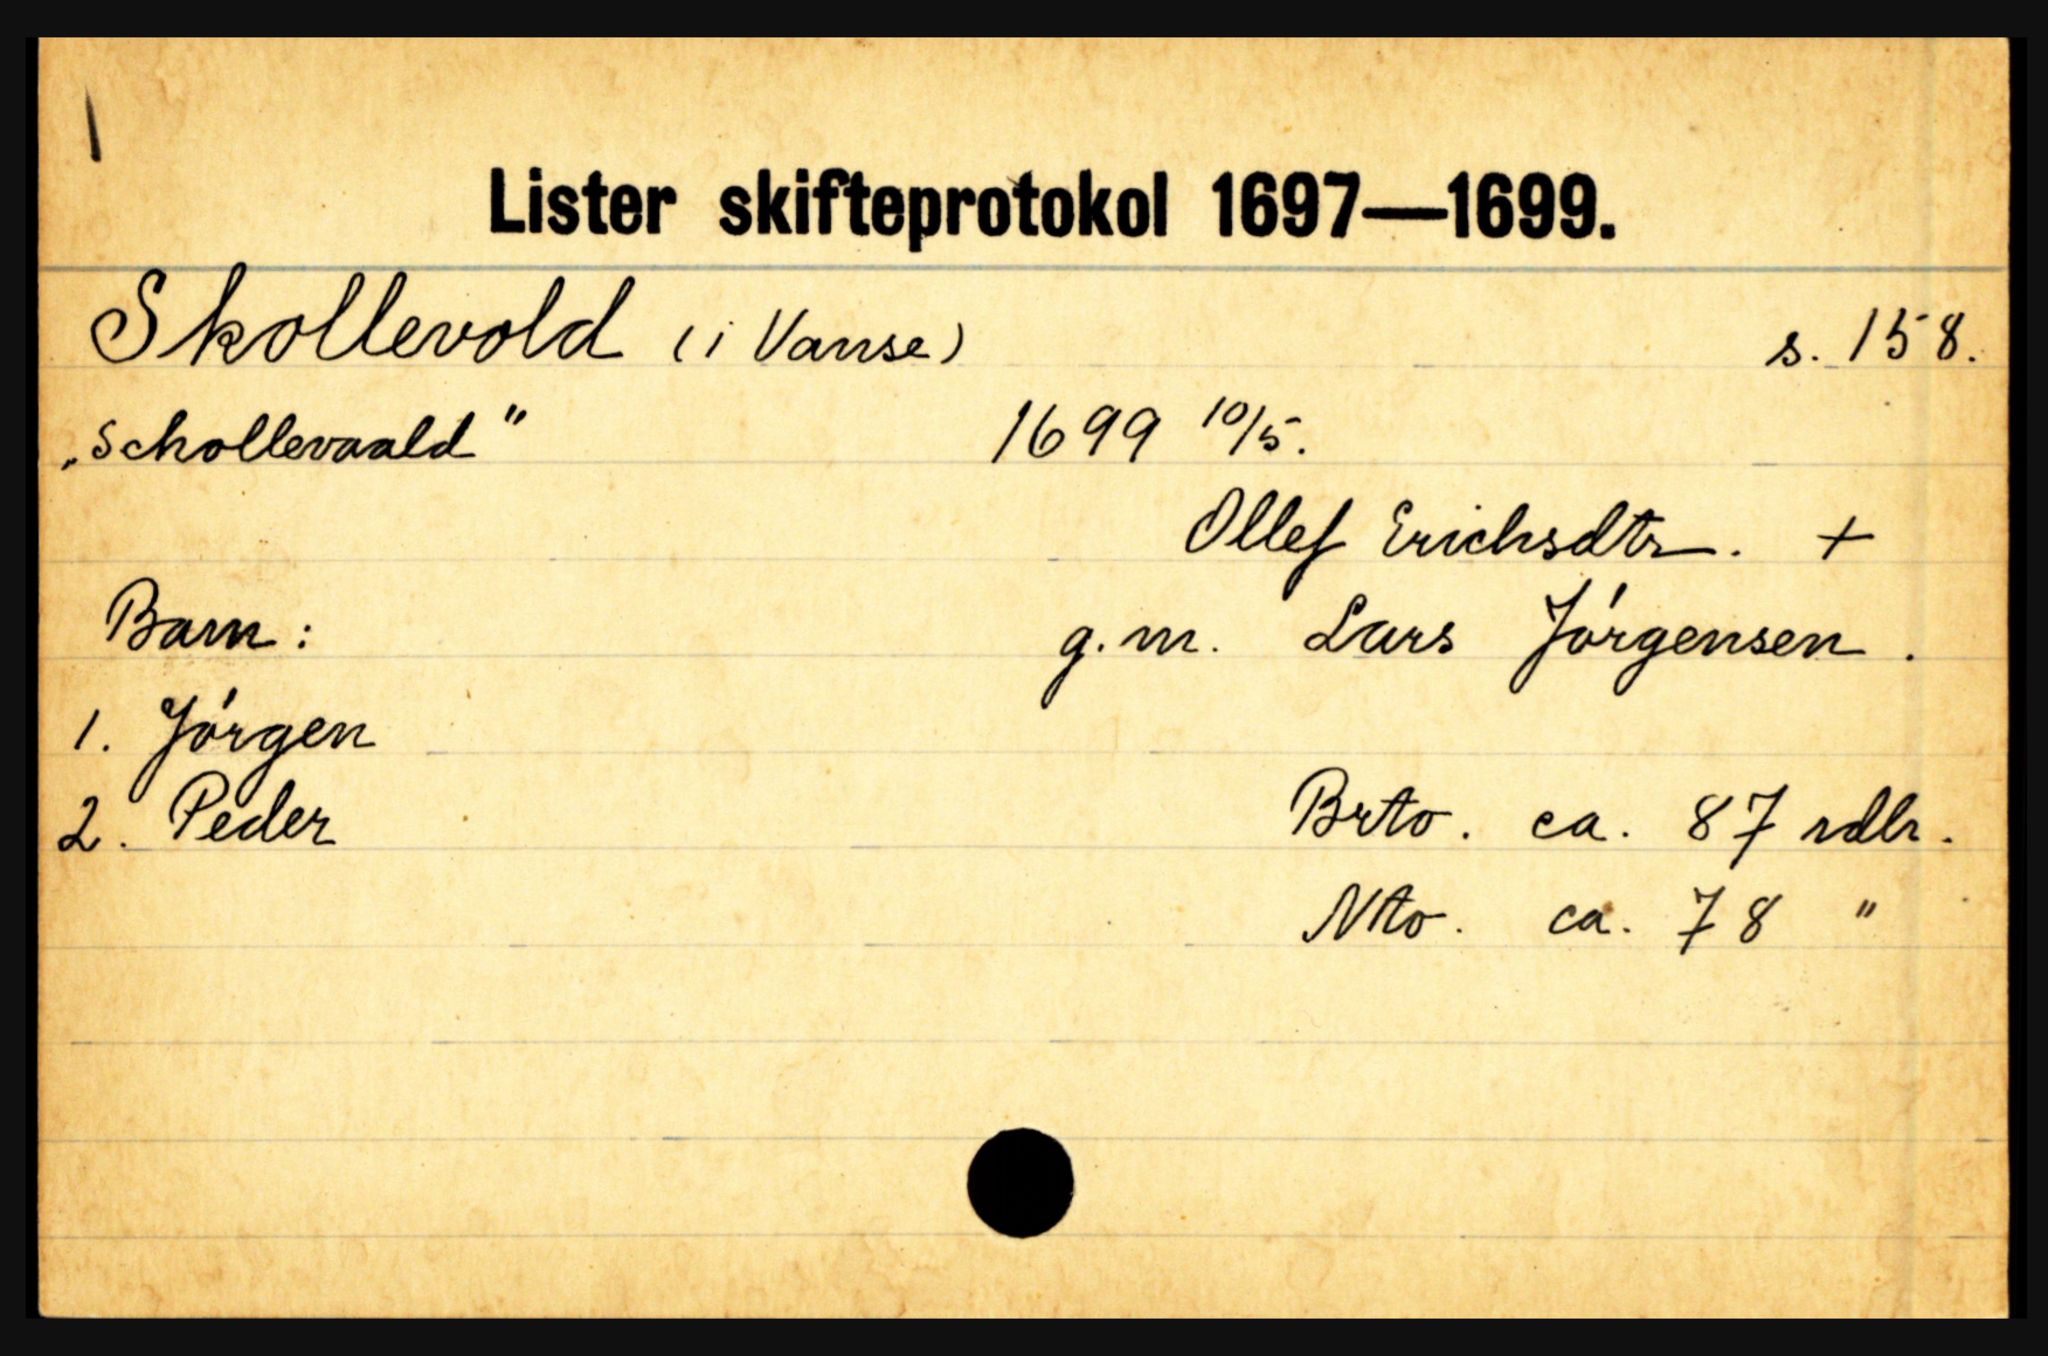 Lister skifteprotokol 1697—1699.
Skollevold (i Vanse) s. 158.
„Schollevaald" 1699 10/5.
Ollef Erichsdtr. +
Barn: g.m. Lars Jørgensen.
1. Jørgen
2. Peder Brto. ca. 87 rdlr.
Nto. ca. 78 "